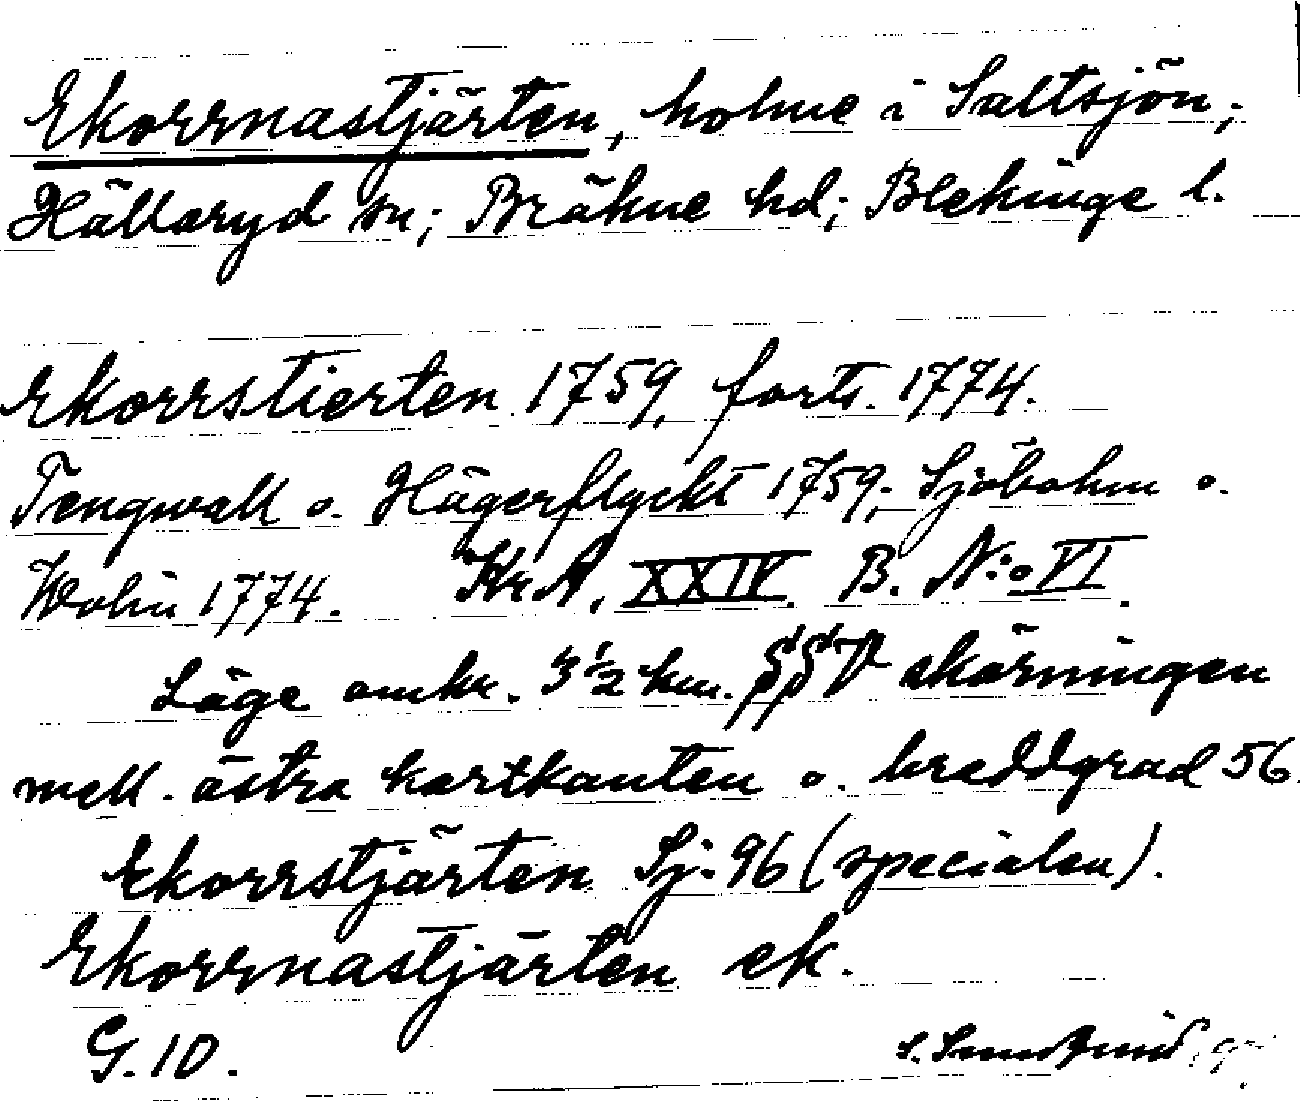 Ekorrnastjärten, holme i Saltsjön;
Hällaryd sn; Bräkne hd; Blekinge l.
Ekorrstierten 1759, forts. 1774.
Tengwall o. Hägerflyckt 1759; Sjöbohm o.
Wolin 1774. Kr.A. XXIV. B. N:o VI.
Läge omkr. 3 1/2 km. skärningen
mell. östra kartkanten o. breddgrad 56.
Ekorrstjärten Sj. 96 (specialen).
Ekorrnastjärten ek.
G. 10.